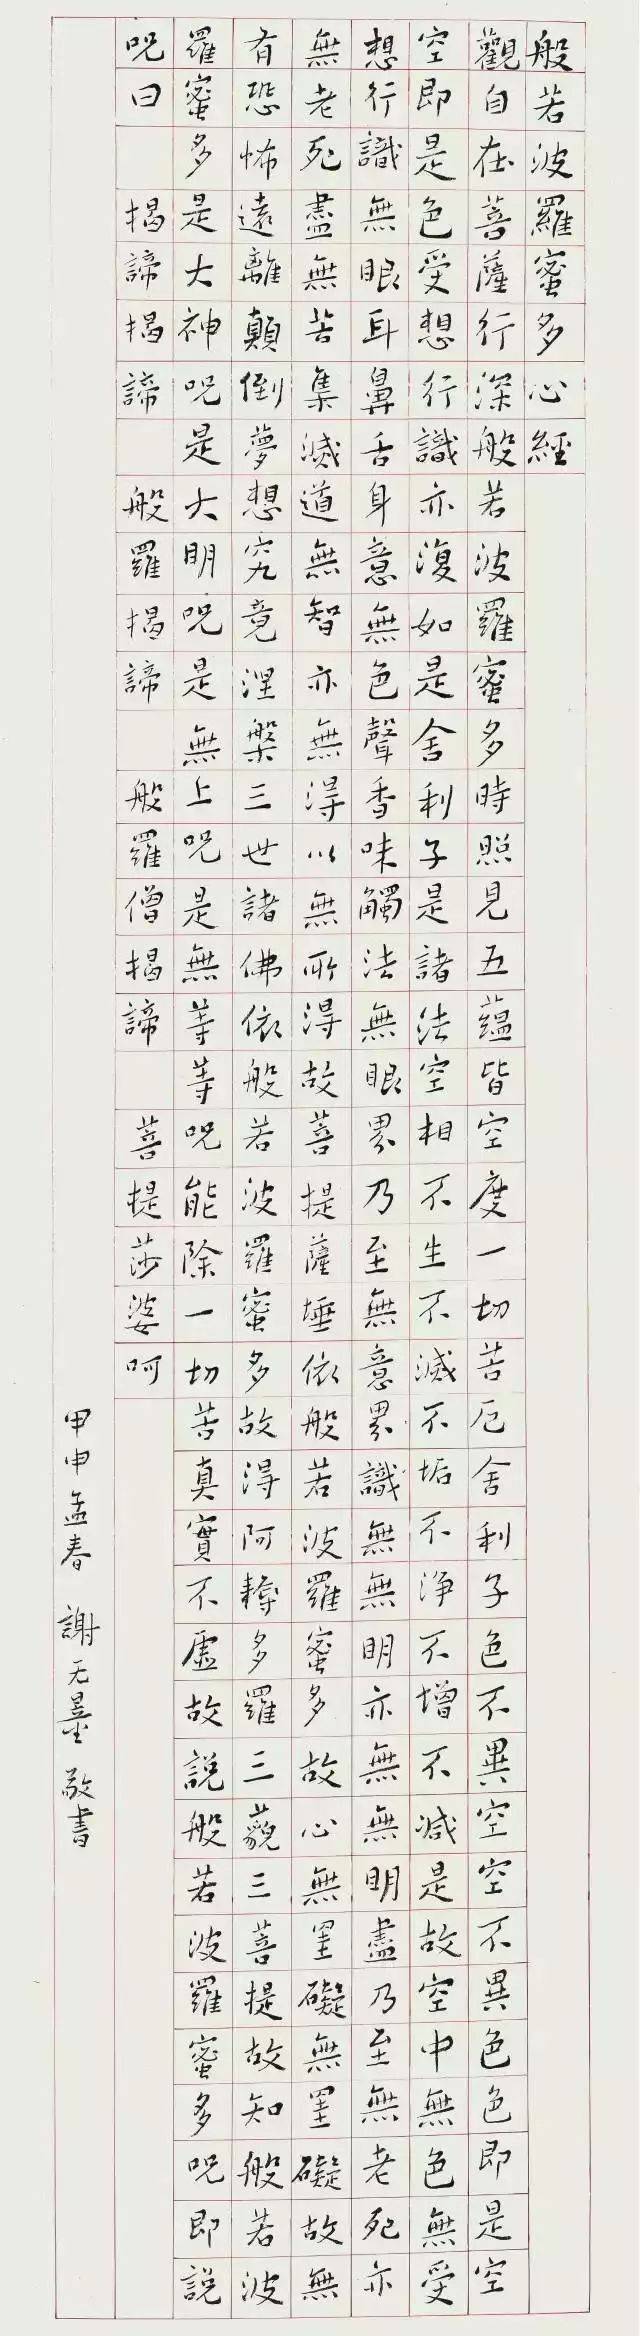 般若波羅蜜多心經
觀自在菩薩行深般若波羅蜜多時照見五蘊皆空度一切苦厄舍利子色不異空空不異色色即是空
空即是色受想行識亦復如是舍利子是諸法空相不生不滅不垢不淨不增不減是故空中無色無受
想行識無眼耳鼻舌身意無色聲香味觸法無眼界乃至無意界識無無明亦無無明盡乃至無老死亦
無老死盡無苦集滅道無智亦無得以無所得故菩提薩埵依般若波羅蜜多故心無罣礙無罣礙故無
有恐怖遠離顛倒夢想究竟涅槃三世諸佛依般若波羅蜜多故得阿耨多羅三藐三菩提故知般若波
羅蜜多是大神呪是大明呪是無上呪是無等等呪能除一切苦真實不虛故說般若波羅蜜多呪即說
呪曰 揭諦揭諦 般羅揭諦 般羅僧揭諦 菩提莎婆呵
甲申孟春 謝无 敬書